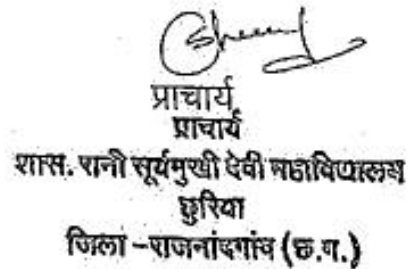 प्राचार्य
प्राचार्य
शास. रानी सूर्यमुखी देवी महाविद्यालय
छुरिया
जिला - राजनांदगांव (छ.ग.)